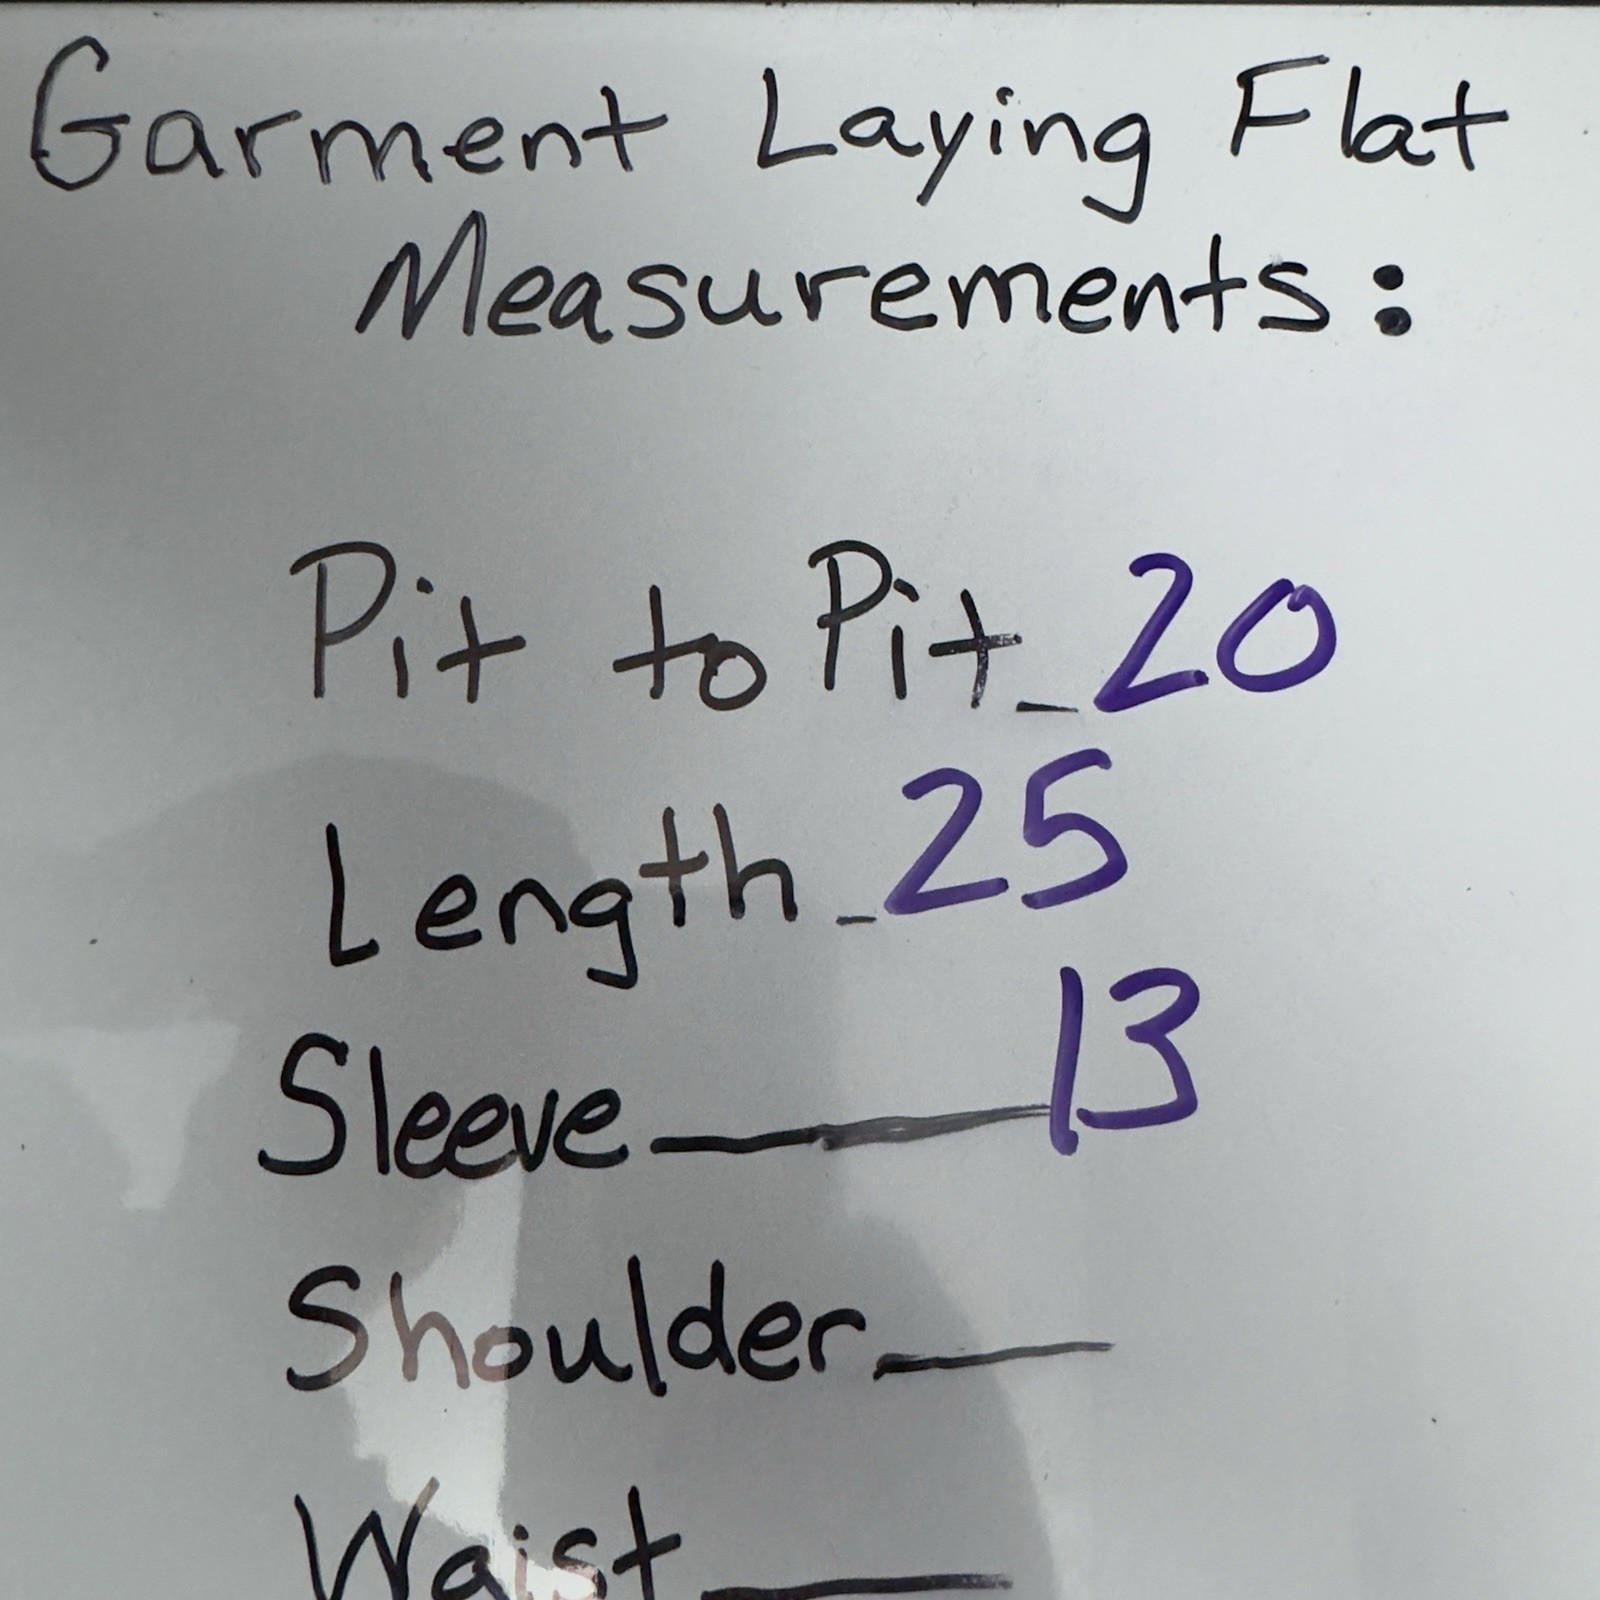 Garment Laying Flat
Measurements:
Pit to Pit_20
Length_25
Sleeve_13
Shoulder_
Waist_